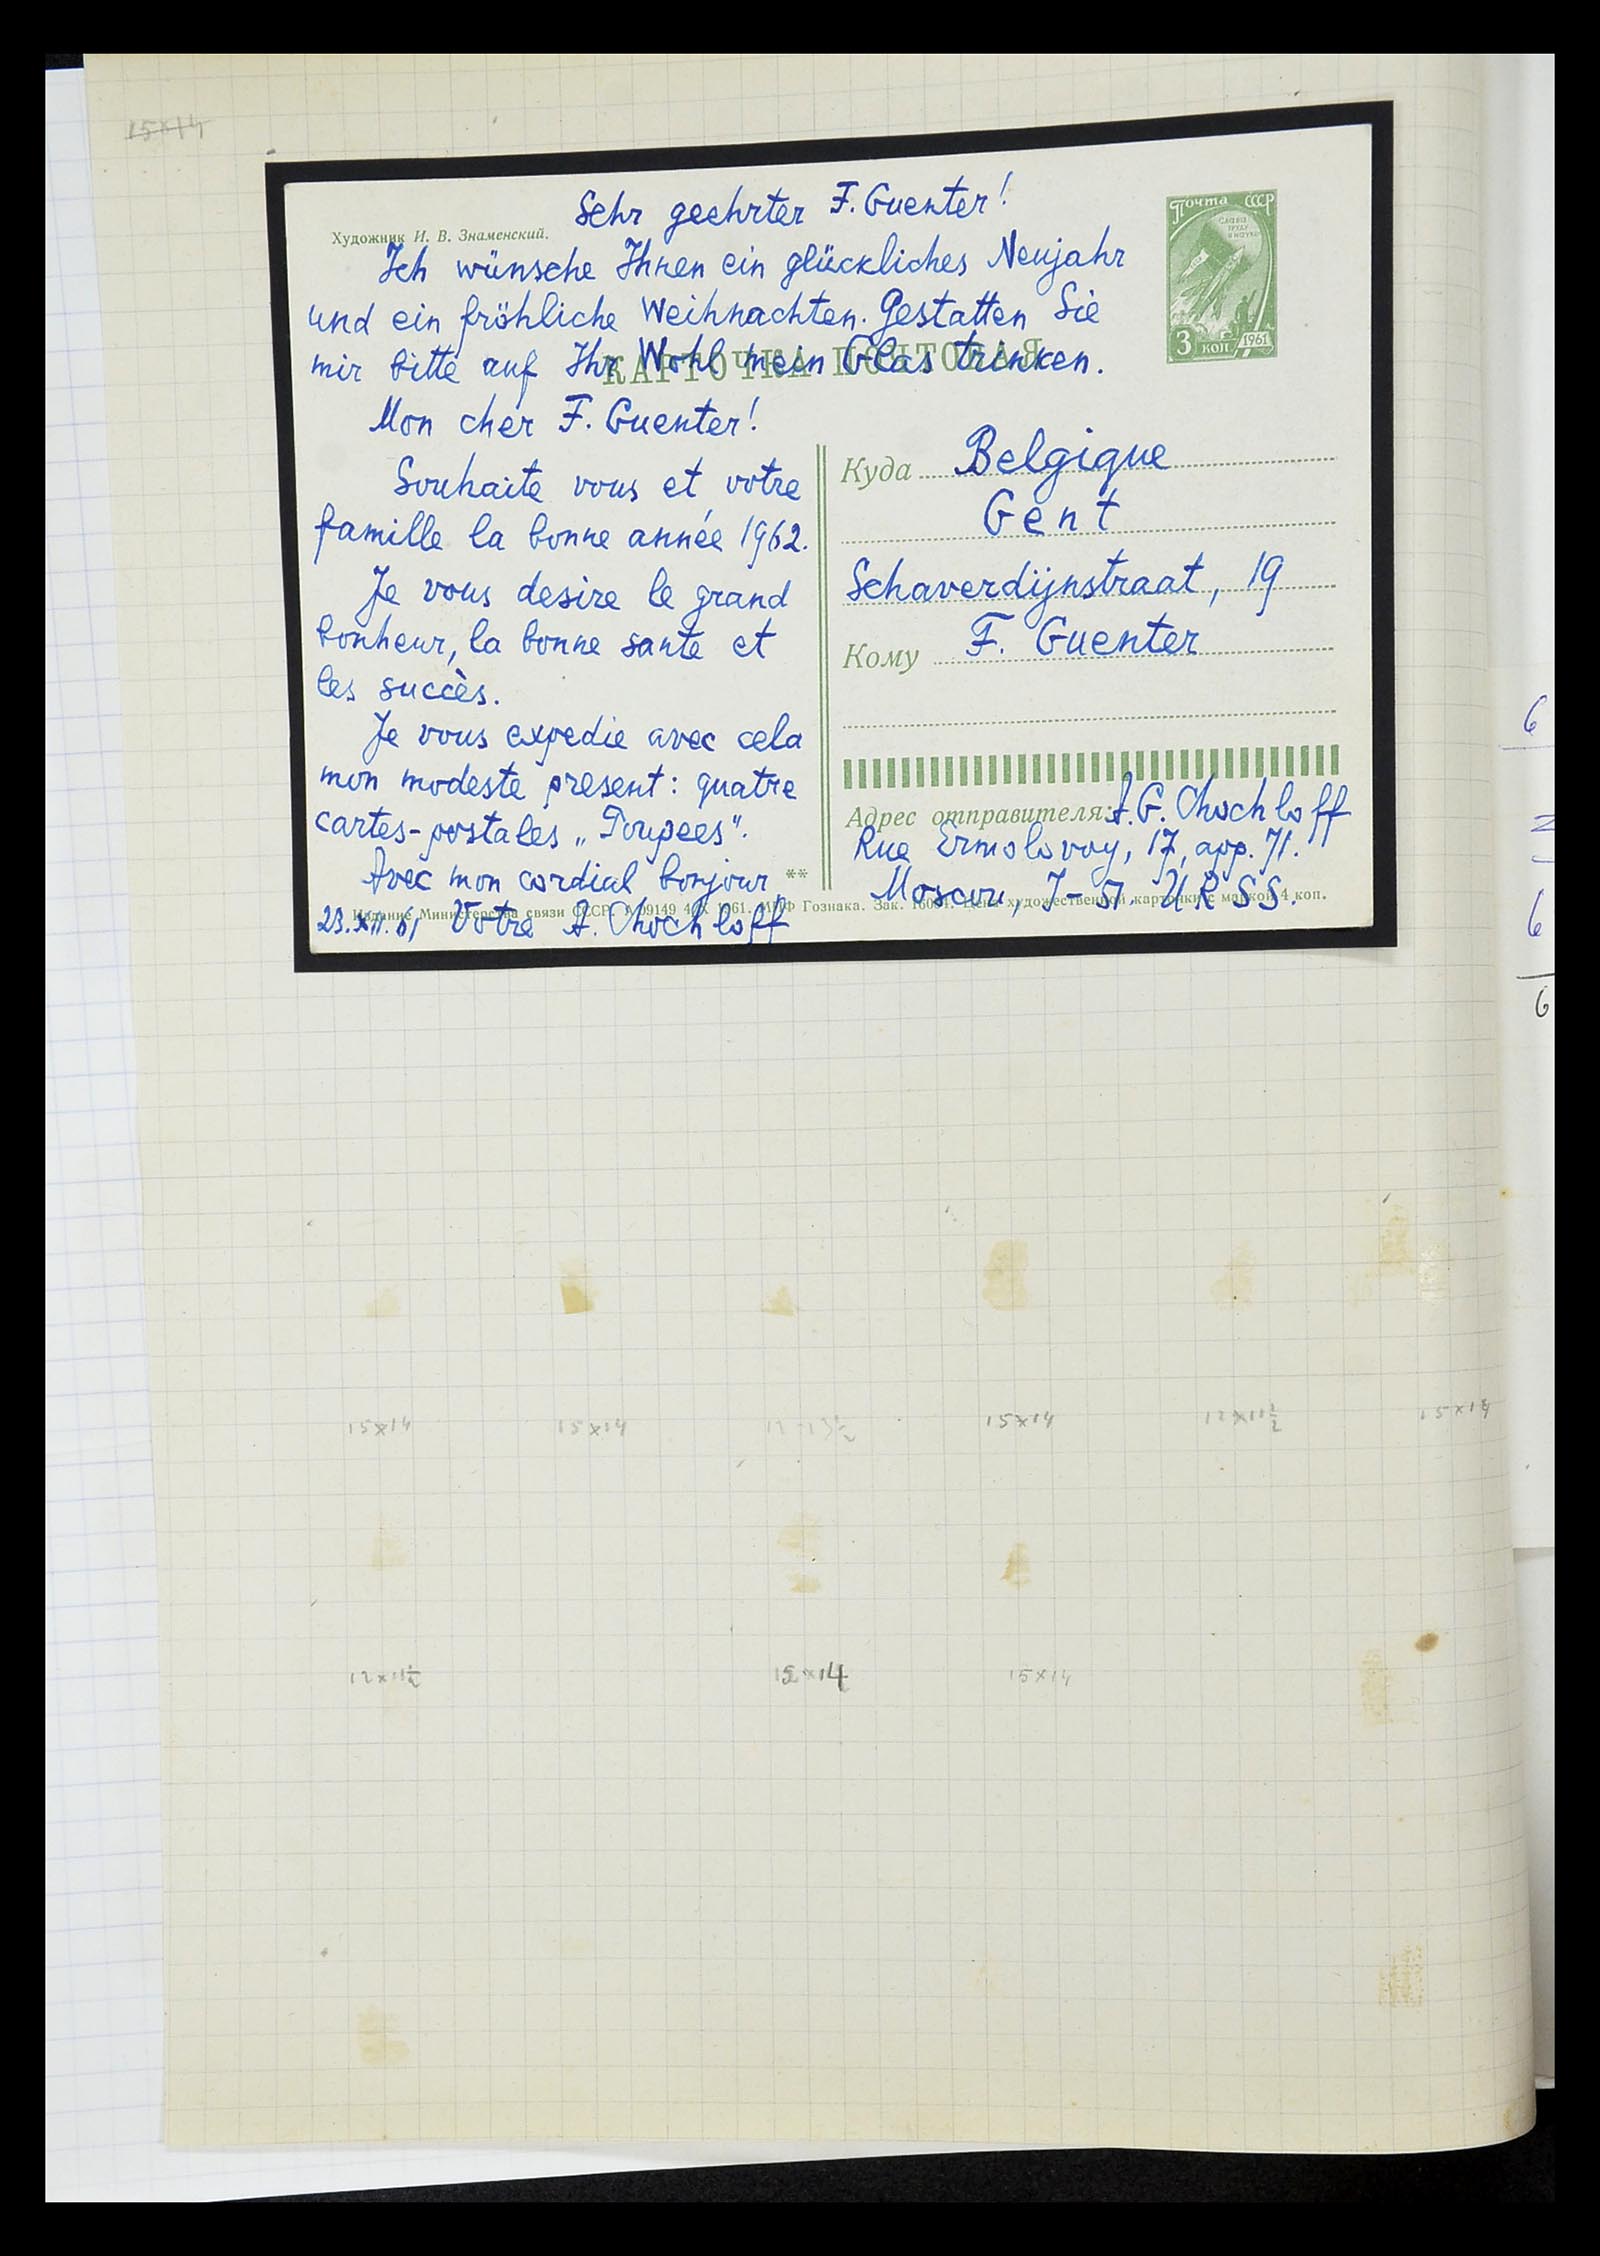 15×14
Sehr geehrter F. Guenter!
Художник И. В. Знаменский.
Ich wünsche Ihnen ein glückliches Neujahr
und ein fröhliche Weihnachten. Gestatten Sie
mir bitte auf Ihr Wohl mein Glas trinken.
КАРТОЧКА ПОЧТОВАЯ
Почта СССР
СЛАВА
ТРУДУ
И НАУКЕ
3 коп 1961
Mon cher F. Guenter!
Souhaite vous et votre
famille la bonne année 1962.
Je vous desire le grand
bonheur, la bonne sante et
les succès.
Je vous expedie avec cela
mon modeste present: quatre
cartes-postales „Poupees".
Avec mon cordial bonjour
23.XII.61 Votre A. Chochloff
Куда Belgique
Gent
Schaverdijnstraat, 19
Кому F. Guenter
Адрес отправителя: A.G. Chochloff
Rue Ermolovoy, 17, app. 71.
Moscou, I-51, URSS.
**
Издание Министерства связи СССР. 1961. МПФ Гознака. Зак. Цена художественной карточки с маркой 4 коп.
6
N
6
6
15×14
15×14
15×14
12×11½
15×14
12×11½
15×14
15×14